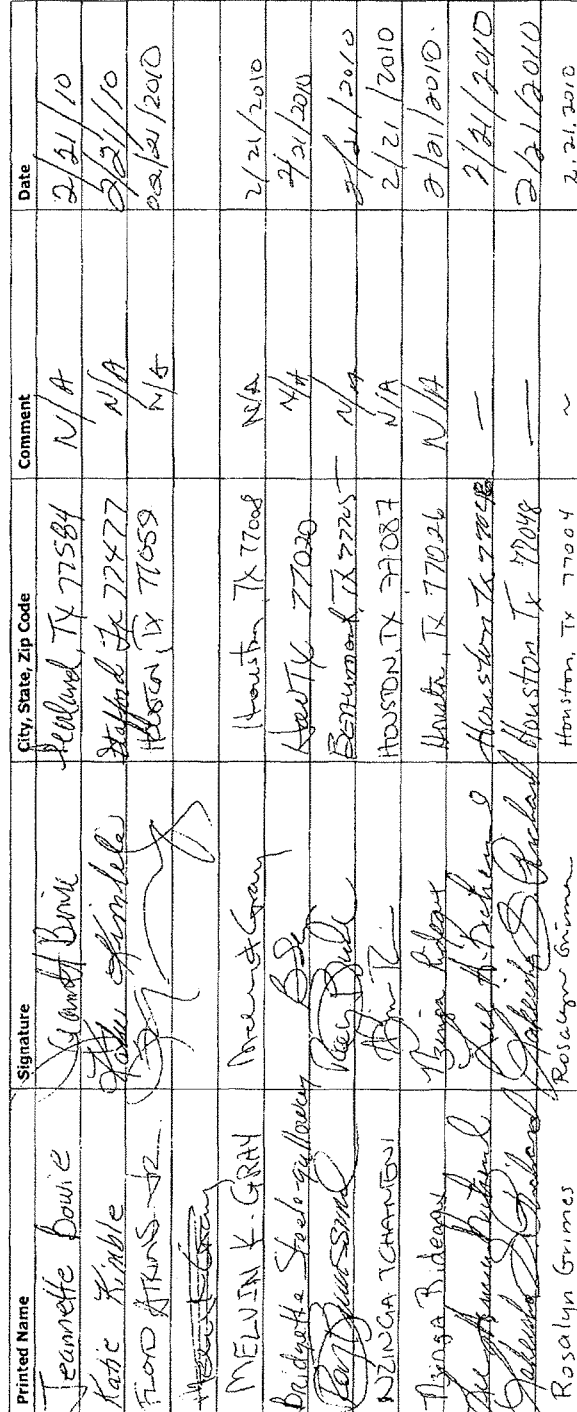 Printed Name Signature City, State, Zip Code Comment Date
Jeannette Bowie Jeannett Bowie Pearland, TX 77584 N/A 2/21/10
Katie Kimble Katie Kimble Stafford Tx 77477 N/A 2/21/10
FLOYD ATKINS JR. HOUSTON, TX 77059 N/A 02/21/2010
MELVIN K. GRAY Houston TX 77008 N/A 2/21/2010
Bridgette Steele-Galloway Hou TX 77020 N/A 2/21/2010
BEAUMONT, TX 77705 N/A 2/21/2010
NZINGA TCHAMENI HOUSTON, TX 77087 N/A 2/21/2010
Nzinga Rideaux Nzinga Rideaux TX 77026 N/A 2/21/2010.
Houston Tx 77048 — 2/21/2010
Lakeisha Houston Tx 77048 — 2/21/2010
Rosalyn Grimes Rosalyn Grimes Houston, TX 77004 ~ 2.21.2010